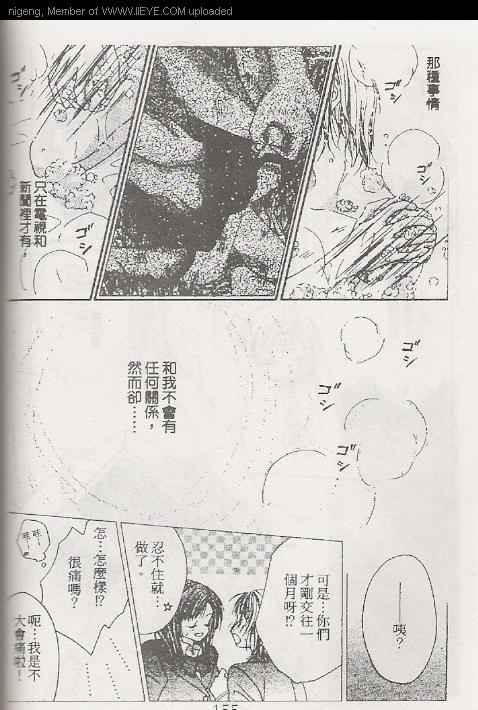 nigeng, Member of WWW.IIEYE.COM uploaded
那種事情
ゴシ
ゴシ
只在電視和
新聞裡才有，
ゴシ
ゴシ
ゴシ
ゴシ
和我不會有
任何關係，
然而卻……
——咦？
可是…你們
才剛交往一
個月呀!?
忍不住就…
做了。☆
怎…怎麼樣!?
很痛嗎？
呃…我是不
大會痛啦！
155